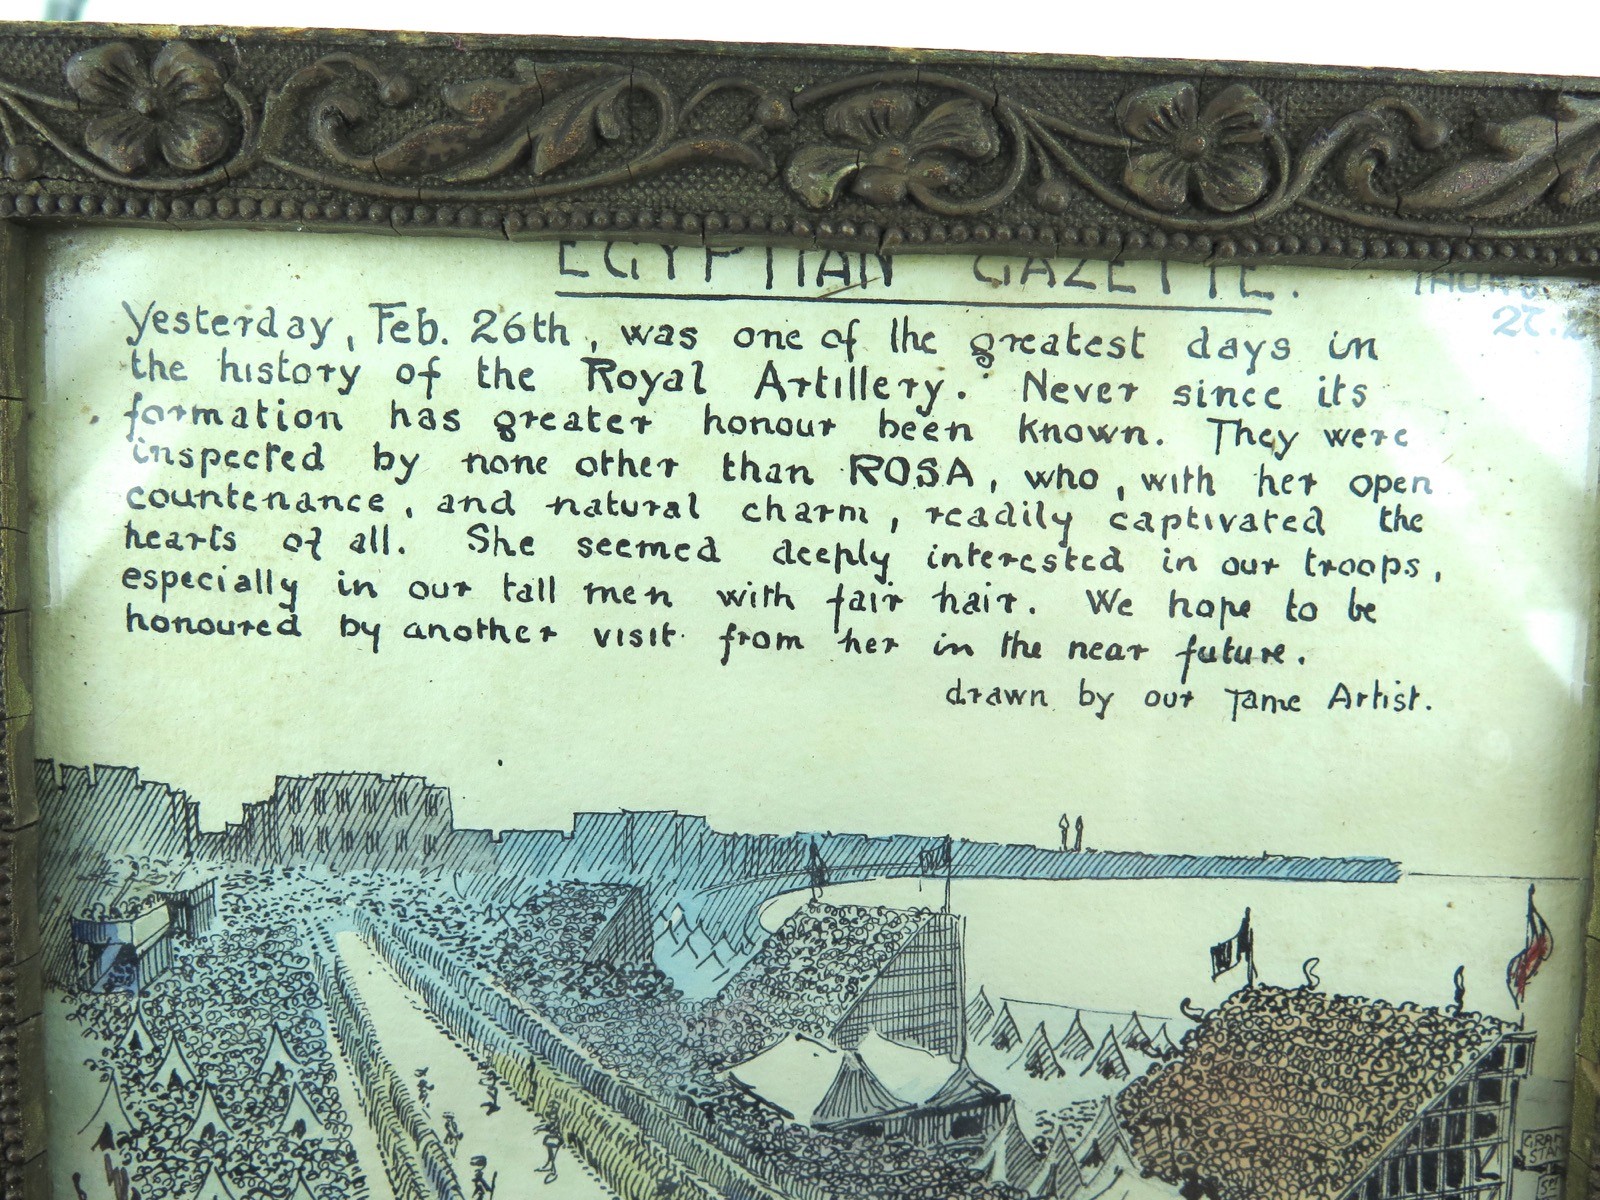 EGYPTIAN GAZETTE.
Yesterday, Feb. 26th, was one of the greatest days in
the history of the Royal Artillery. Never since its
formation has greater honour been known. They were
inspected by none other than ROSA, who, with her open
countenance, and natural charm, readily captivated the
hearts of all. She seemed deeply interested in our troops,
especially in our tall men with fair hair. We hope to be
honoured by another visit from her in the near future.
drawn by our Tame Artist.